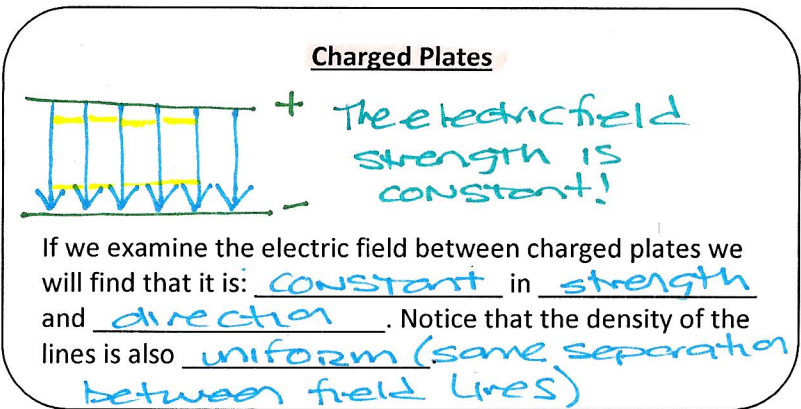 Charged Plates
+ The electric field
strength is
constant!
–
If we examine the electric field between charged plates we
will find that it is: constant in strength
and direction. Notice that the density of the
lines is also uniform (same separation
between field lines)